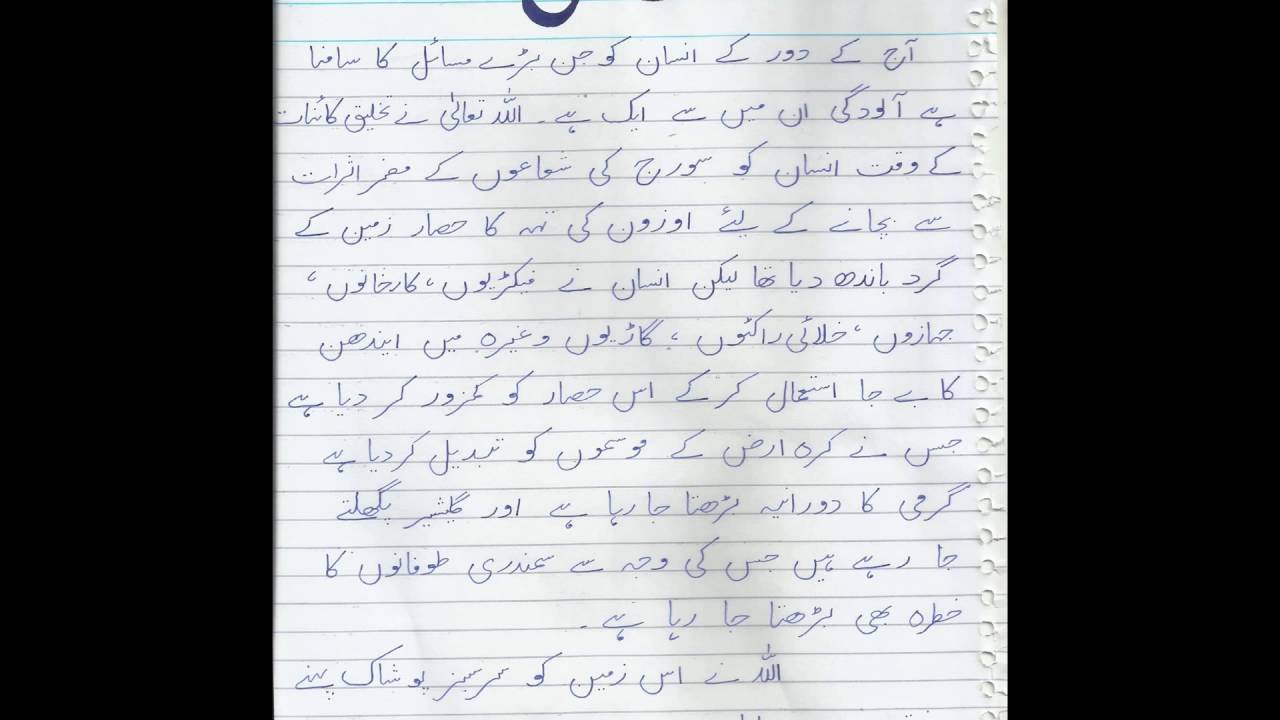 آج کے دور کے انسان کو جن بڑے مسائل کا سامنا
ہے آلودگی ان میں سے ایک ہے۔ اللہ تعالیٰ نے تخلیق کائنات
کے وقت انسان کو سورج کی شعاعوں کے مضر اثرات
سے بچانے کے لئے اوزون کی تہہ کا حصار زمین کے
گرد باندھ دیا تھا لیکن انسان نے فیکٹریوں، کارخانوں،
جہازوں، خلائی راکٹوں، گاڑیوں وغیرہ میں ایندھن
کا بے جا استعمال کر کے اس حصار کو کمزور کر دیا ہے
جس نے کرہ ارض کے موسموں کو تبدیل کر دیا ہے
گرمی کا دورانیہ بڑھتا جا رہا ہے اور گلیشیر پگھلتے
جا رہے ہیں جس کی وجہ سے سمندری طوفانوں کا
خطرہ بھی بڑھتا جا رہا ہے۔
اللہ نے اس زمین کو سرسبز پوشاک پہنے